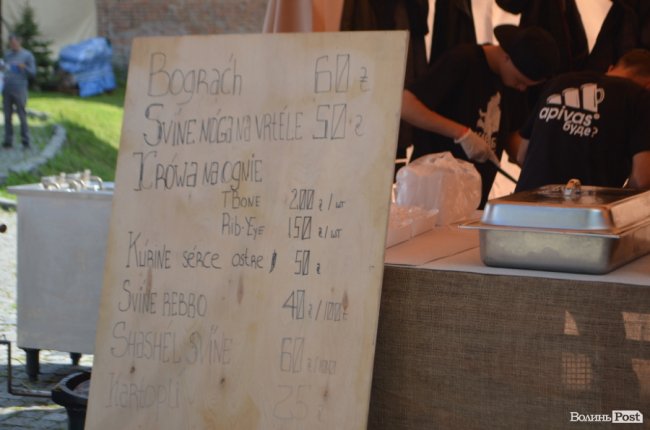 Bograćh 60 ₴
Svíne nóga na vrtéle 50 ₴
Crówa na ognie
T Bone 200 ₴/шт
Rib-Eye 150 ₴/шт
Kúrine sérce ostre 50 ₴
Svíne rebbo 40 ₴/100г
Shashél svíne 60 ₴/100г
Kartopli 25 ₴
apivas
буде?
Волинь Post